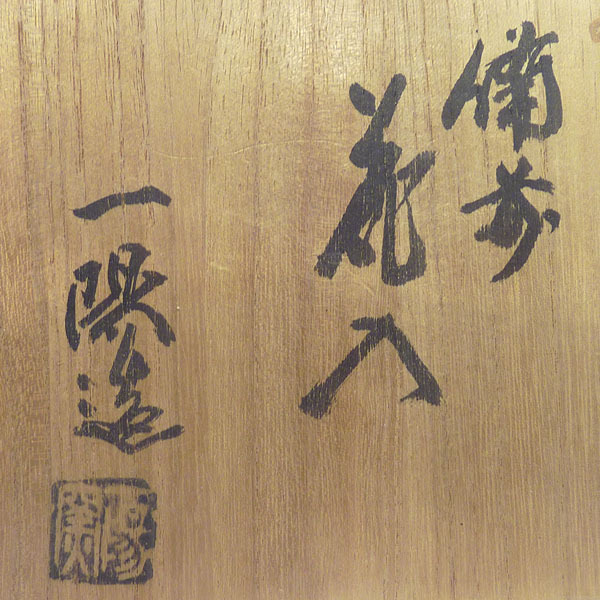 備前
花入
一陽造